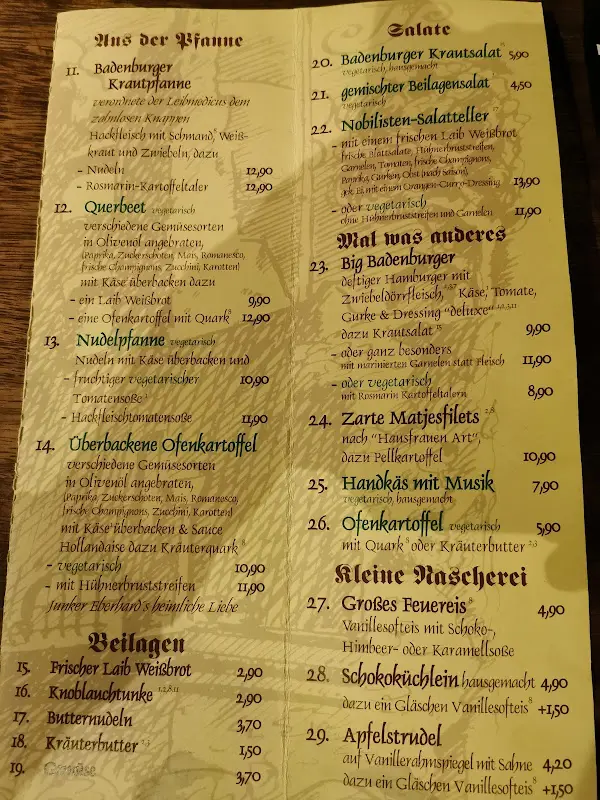 Aus der Pfanne
11. Badenburger
Krautpfanne
verordnete der Leibmedicus dem
zahnlosen Knappen
Hackfleisch mit Schmand, Weiß-
kraut und Zwiebeln, dazu
- Nudeln 12,90
- Rosmarin-Kartoffeltaler 12,90
12. Querbeet vegetarisch
verschiedene Gemüsesorten
in Olivenöl angebraten,
(Paprika, Zuckerschoten, Mais, Romanesco,
frische Champignons, Zucchini, Karotten)
mit Käse überbacken dazu
- ein Laib Weißbrot 9,90
- eine Ofenkartoffel mit Quark 8 12,90
13. Nudelpfanne vegetarisch
Nudeln mit Käse überbacken und
- fruchtiger vegetarischer 10,90
Tomatensoße
- Hackfleischtomatensoße 11,90
14. Überbackene Ofenkartoffel
verschiedene Gemüsesorten
in Olivenöl angebraten,
(Paprika, Zuckerschoten, Mais, Romanesco,
frische Champignons, Zucchini, Karotten)
mit Käse überbacken & Sauce
Hollandaise dazu Kräuterquark 8
- vegetarisch 10,90
- mit Hühnerbruststreifen 11,90
Junker Eberhard's heimliche Liebe
Beilagen
15. Frischer Laib Weißbrot 2,90
16. Knoblauchtunke 1,2,8,11 2,90
17. Butternudeln 3,70
18. Kräuterbutter 2,3 1,50
19. Gemüse 3,70
Salate
20. Badenburger Krautsalat 5,90
vegetarisch, hausgemacht
21. gemischter Beilagensalat 4,50
vegetarisch
22. Nobilisten-Salatteller
- mit einem frischen Laib Weißbrot
frische Blattsalate, Hühnerbruststreifen,
Garnelen, Tomaten, frische Champignons,
Paprika, Gurken, Obst (nach Saison),
gek. Ei, mit einem Orangen-Curry-Dressing 13,90
- oder vegetarisch
ohne Hühnerbruststreifen und Garnelen 11,90
Mal was anderes
23. Big Badenburger
deftiger Hamburger mit
Zwiebeldörrfleisch, Käse, Tomate,
Gurke & Dressing "deluxe"
dazu Krautsalat 9,90
- oder ganz besonders
mit marinierten Garnelen statt Fleisch 11,90
- oder vegetarisch
mit Rosmarin Kartoffeltalern 8,90
24. Zarte Matjesfilets 2,8
nach "Hausfrauen Art",
dazu Pellkartoffel 10,90
25. Handkäs mit Musik 7,90
vegetarisch, hausgemacht
26. Ofenkartoffel vegetarisch 5,90
mit Quark 8 oder Kräuterbutter 2,3
Kleine Nascherei
27. Großes Feuereis 8 4,90
Vanillesofteis mit Schoko-,
Himbeer- oder Karamellsoße
28. Schokoküchlein hausgemacht 4,90
dazu ein Gläschen Vanillesofteis 8 +1,50
29. Apfelstrudel
auf Vanillerahmspiegel mit Sahne 4,20
dazu ein Gläschen Vanillesofteis 8 +1,50